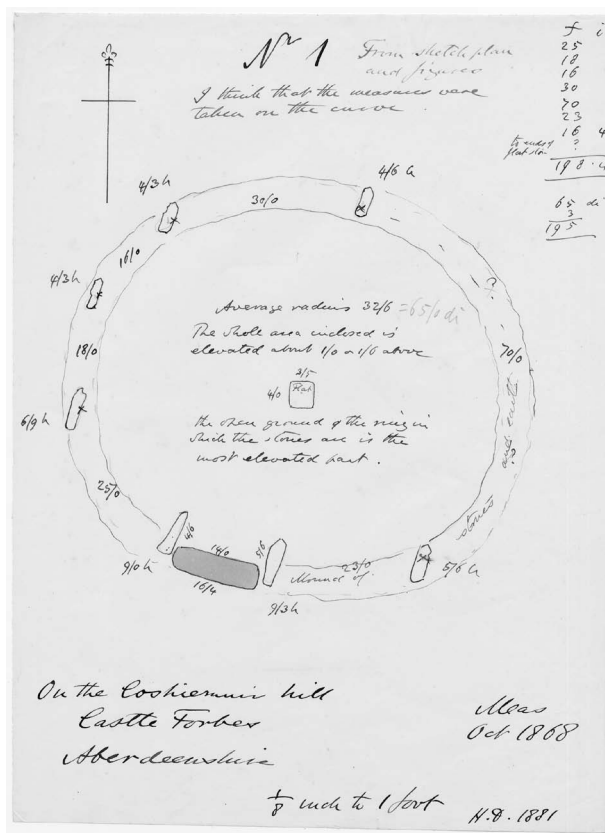 Nr 1
From sketch plan
and figures
I think that the measures were
taken on the curve.
f i
25
18
16
30
70
23
16 4
to ends of
flat stone
?
198.4
65 di
3
195
4/3 h
4/6 h
30/0
16/0
4/3 h
18/0
6/9 h
25/0
?
70/0
Average radius 32/6 =65/0 di
The whole area inclosed is
elevated about 1/0 or 1/6 above
3/5
4/0
Flat
the open ground & the ring in
which the stones are is the
most elevated part.
and earth ?
stones
Mound of
23/0
5/6 h
4/6
14/0
5/6
9/0 h
16/4
9/3 h
On the Coshiemuir hill
Castle Forbes
Aberdeenshire
Meas
Oct 1868
1/8 inch to 1 foot
H.D. 1881